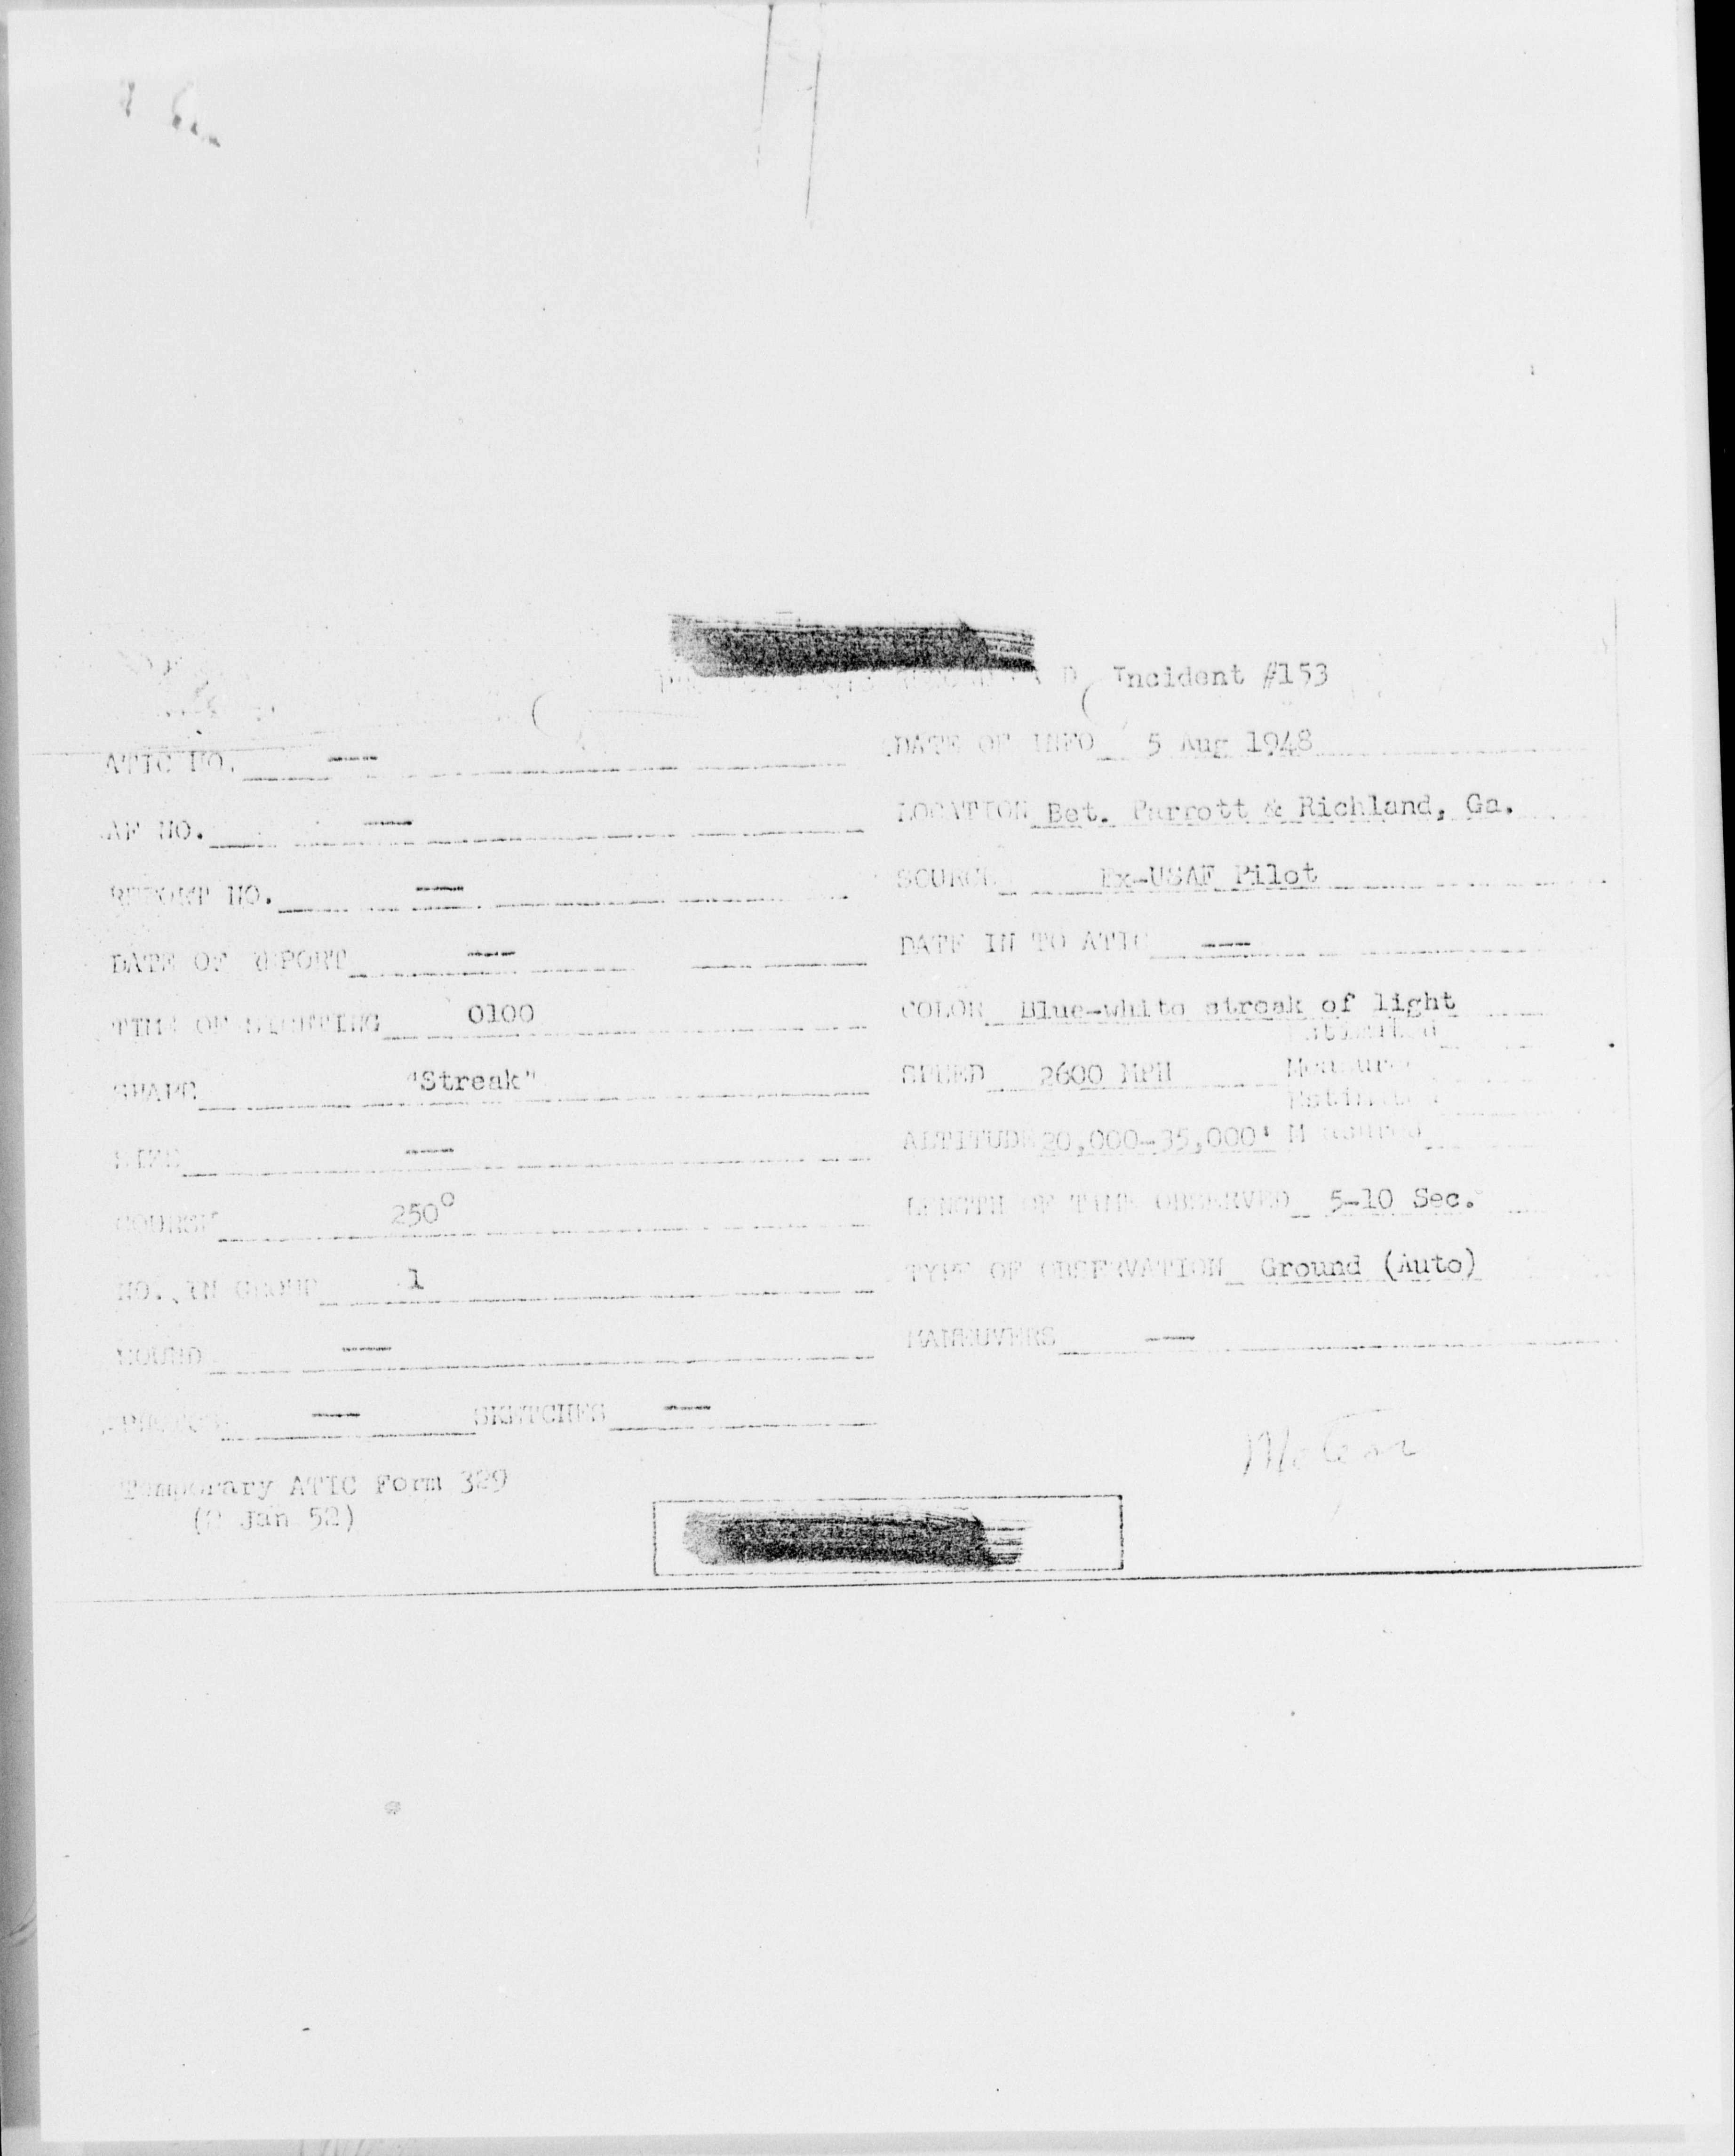 Incident #153
ATIC NO. ---
DATE OF INFO 5 Aug 1948
AF NO. ---
LOCATION Bet. Parrott & Richland, Ga.
REPORT NO. ---
SOURCE Ex-USAF Pilot
DATE OF REPORT ---
DATE IN TO ATIC ---
TIME OF SIGHTING 0100
COLOR Blue-white streak of light
SHAPE "Streak"
Estimated
SPEED 2600 MPH Measured
SIZE ---
Estimated
ALTITUDE 20,000-35,000' Measured
COURSE 250°
LENGTH OF TIME OBSERVED 5-10 Sec.
NO. IN GROUP 1
TYPE OF OBSERVATION Ground (Auto)
SOUND ---
MANEUVERS ---
PHOTOS --- SKETCHES ---
Meteor
Temporary ATIC Form 329
(2 Jan 52)